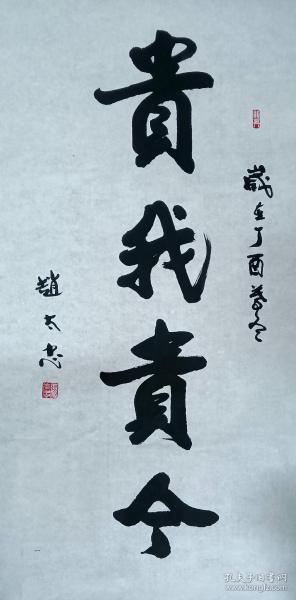 歲在丁酉冬
貴我貴今
趙太忠
孔夫子旧书网
www.kongfz.com